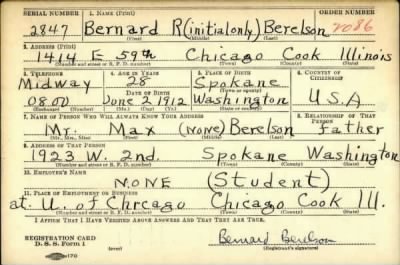 SERIAL NUMBER 1. NAME (Print) ORDER NUMBER
2847 Bernard R (initial only) Berelson 2086
(First) (Middle) (Last)
2. ADDRESS (Print)
1414 E 59th Chicago Cook Illinois
(Number and street or R. F. D. number) (Town) (County) (State)
3. TELEPHONE 4. AGE IN YEARS 5. PLACE OF BIRTH 6. COUNTRY OF CITIZENSHIP
Midway 28 Spokane
DATE OF BIRTH (Town or county)
0800 June 2 1912 Washington U S A
(Exchange) (Number) (Mo.) (Day) (Yr.) (State or country)
7. NAME OF PERSON WHO WILL ALWAYS KNOW YOUR ADDRESS 8. RELATIONSHIP OF THAT PERSON
Mr. Max (None) Berelson father
(Mr., Mrs., Miss) (First) (Middle) (Last)
9. ADDRESS OF THAT PERSON
1923 W. 2nd. Spokane Washington
(Number and street or R. F. D. number) (Town) (County) (State)
10. EMPLOYER'S NAME
NONE (Student)
11. PLACE OF EMPLOYMENT OR BUSINESS
at U. of Chicago Chicago Cook Ill.
(Number and street or R. F. D. number) (Town) (County) (State)
I AFFIRM THAT I HAVE VERIFIED ABOVE ANSWERS AND THAT THEY ARE TRUE.
REGISTRATION CARD
D. S. S. Form 1 (over) Bernard Berelson
(Registrant's signature)